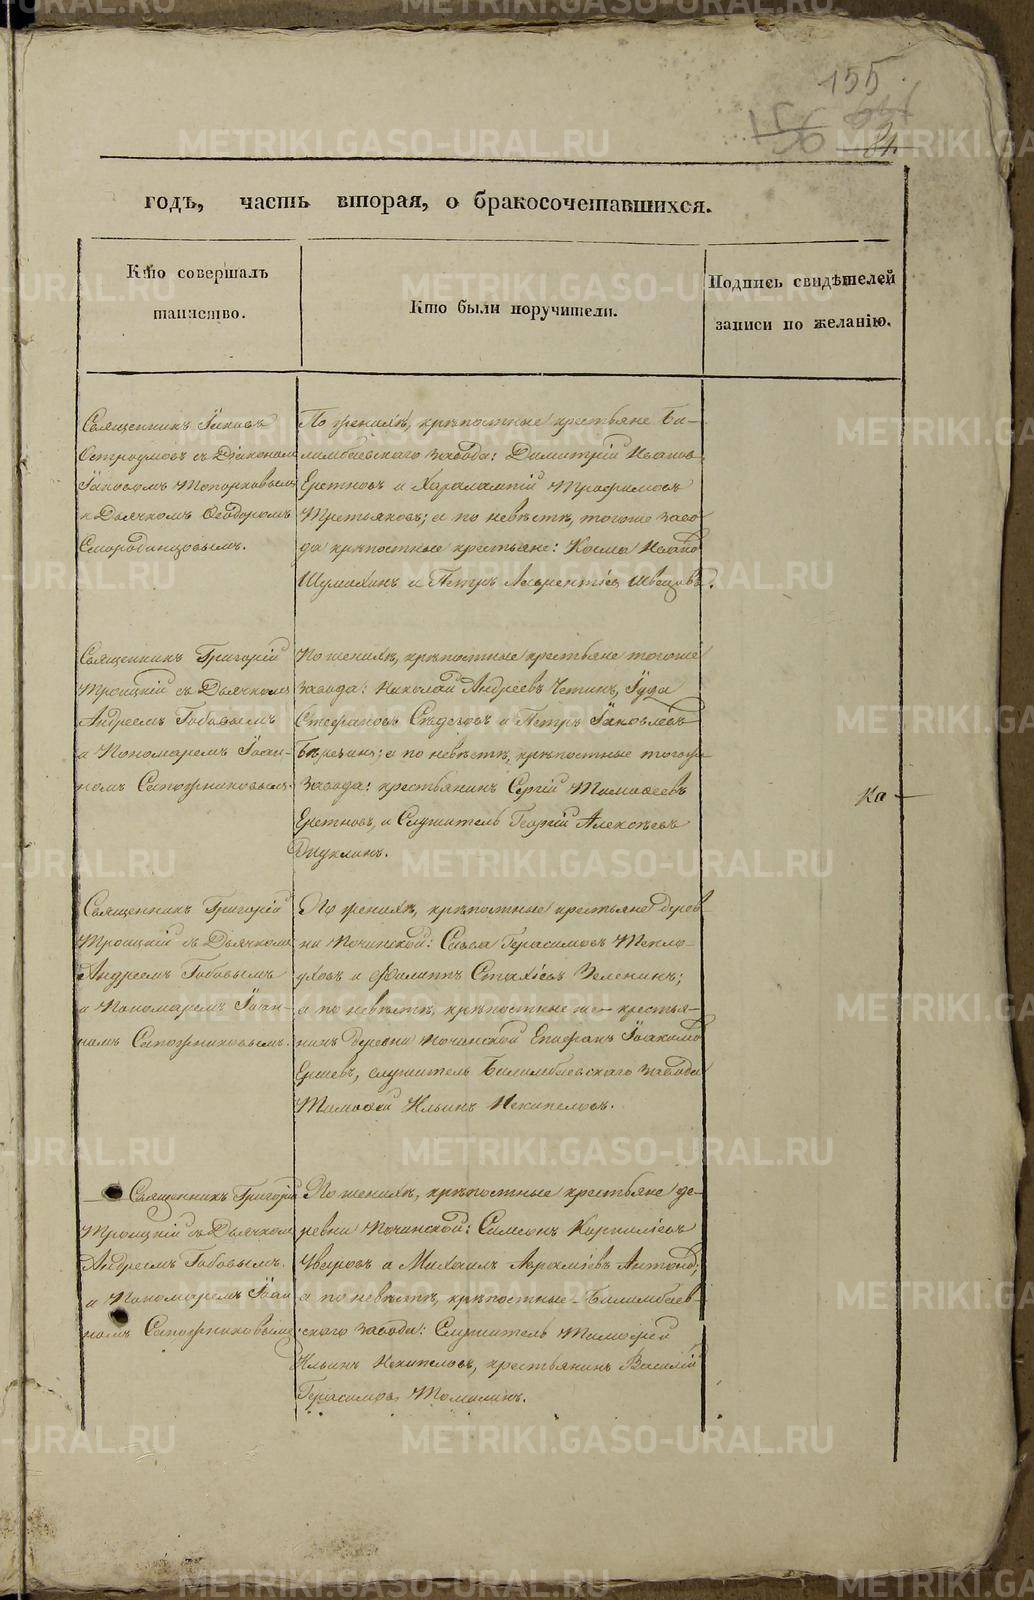 155
годъ, часть вторая, о бракосочетавшихся.
Кто совершалъ
таинство.
Кто были поручители.
Подпись свидѣтелей
записи по желанію.
Священникъ Іаковъ
Остроумовъ съ Діакономъ
Іаковомъ Топорковымъ
и Дьячкомъ Ѳеодоромъ
Смородинцовымъ.
По женихѣ, крѣпостные крестьяне Би-
лимбаевскаго завода: Димитрій Ивановъ
и Харалампій Трофимовъ
Третьяковъ; а по невѣстѣ, тогоже заво
да крѣпостные крестьяне: Косма Ивано
Шумихинъ и Петръ Лаврентіев Швецовъ.
Священникъ Григорій
Троицкій съ Дьячкомъ
Андреемъ Бабовымъ
и Пономаремъ Іоан-
номъ Сапожниковымъ.
По женихѣ, крѣпостные крестьяне тогоже
завода: Николай Андреевъ Четинъ, Іуда
Стефановъ и Петръ Іаковлевъ
Березинъ; а по невѣстѣ, крѣпостные тогоже
завода: крестьянинъ Сергій Тимоѳеевъ
и Служитель Георгій Алексѣевъ
Ка —
Священникъ Григорій
Троицкій съ Дьячкомъ
Андреемъ Бабовымъ
и Пономаремъ Іоан-
номъ Сапожниковымъ.
По женихѣ, крѣпостные крестьяне дерев
ни Починской: Савва Герасимовъ Тепло-
уховъ и Филиппъ Стахіевъ Зеленинъ;
а по невѣстѣ, крѣпостные же крестья-
нинъ деревни Починской Епифанъ Іоакимо
Ершевъ, служитель Билимбаевскаго завода
Тимоѳей Ильинъ Некипеловъ.
Священникъ Григорій
Троицкій съ Дьячкомъ
Андреемъ Бабовымъ.
и Пономаремъ Іоан
номъ Сапожниковымъ.
По женихѣ, крѣпостные крестьяне де-
ревни Починской: Симеонъ Корниліевъ
а Михаилъ Авраміевъ Антоно;
а по невѣстѣ, крѣпостные Билимбаев-
скаго завода: Служитель Тимоѳей
Ильинъ Некипеловъ, крестьянинъ Василій
Герасимовъ Томилинъ.
METRIKI.GASO-URAL.RU